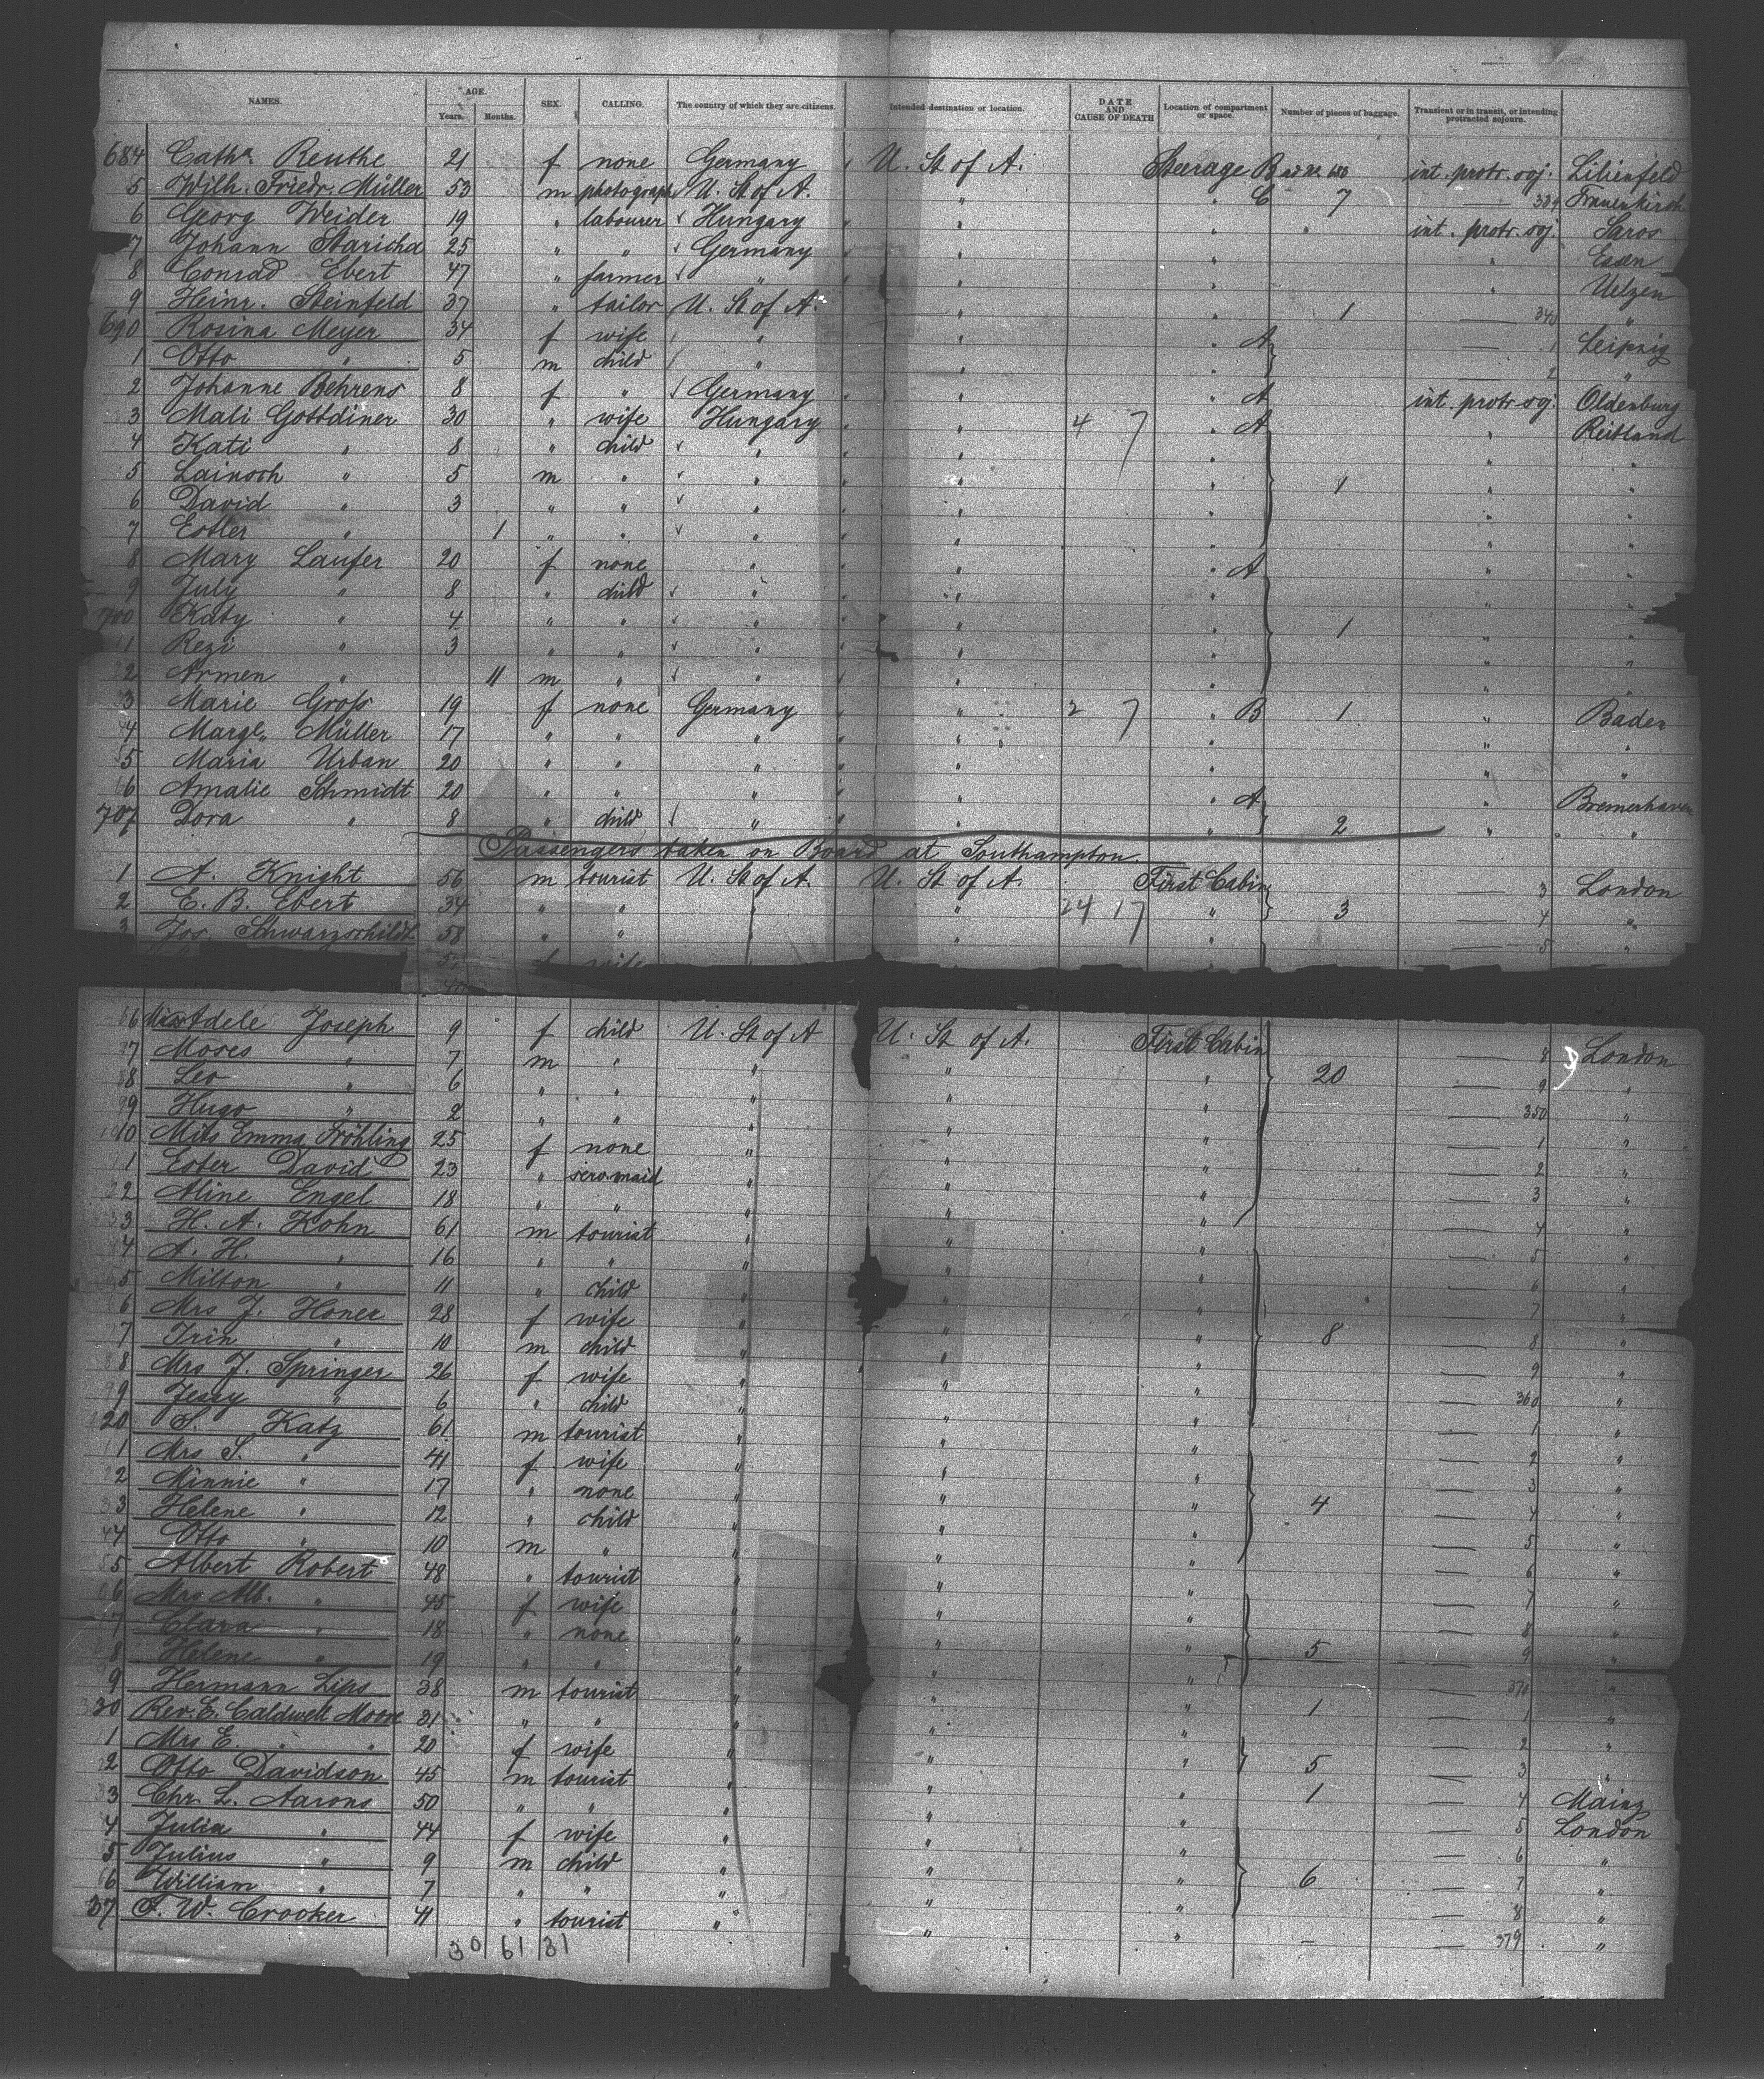 NAMES. AGE. Years. Months. SEX. CALLING. The country of which they are citizens. Intended destination or location. DATE AND CAUSE OF DEATH Location of compartment or space. Number of pieces of baggage. Transient or in transit, or intending protracted sojourn.
684 Catha. Reuthe 21 f none Germany U. St of A. Steerage B int. protr. soj. Lilienfeld
5 Wilh. Friedr. Müller 53 m photograph U. St of A. " " C 7 — 339 Frauenkirch
6 Georg Weider 19 " labourer Hungary " " " int. protr. soj. Saros
7 Johann Staricha 25 " " Germany " " " Essen
8 Conrad Ebert 47 " farmer " " " " Uelzen
9 Heinr. Steinfeld 37 " tailor U. St of A. " " 1 — 340 "
690 Rosina Meyer 34 f wife " " " A — 1 Leipzig
1 Otto " 5 m child " " " — 2 "
2 Johanne Behrens 8 f " Germany " " A int. protr. soj. Oldenburg
3 Mali Gottdiner 30 " wife Hungary " 4 7 " A " Reitland
4 Kati " 8 " child " " " " "
5 Lainoch " 5 m " " " " 1 " "
6 David " 3 " " " " " " "
7 Estler " 1 " " " " " " "
8 Mary Laufer 20 f none " " " A " "
9 July " 8 " child " " " " "
700 Katy " 4 " " " " " 1 " "
1 Rezi " 3 " " " " " " "
2 Armen " 11 m " " " " " "
3 Marie Gross 19 f none Germany " 2 7 " B 1 " Baden
4 Margt. Müller 17 " " " " " " "
5 Maria Urban 20 " " " " " " "
6 Amalie Schmidt 20 " " " " " A " Bremerhaven
707 Dora " 8 " child " " " 2 " "
Passengers taken on Board at Southampton.
1 A. Knight 56 m tourist U. St of A. U. St of A. First Cabin — 3 London
2 E. B. Ebert 34 " " " " 24 17 " 3 — 4 "
3 Jos. Schwarzschild 58 " " " " " — 5 "
f wife
6 Miss Adele Joseph 9 f child U. St of A U. St of A. First Cabin — 8 London
7 Moses " 7 m " " " " 20 — 9 "
8 Leo " 6 " " " " " — 350 "
9 Hugo " 2 " " " " " — 1 "
10 Miss Emma Fröhling 25 f none " " " — 2 "
1 Ester David 23 " serv. maid " " " — 3 "
2 Aline Engel 18 " " " " " — 4 "
3 H. A. Kohn 61 m tourist " " " — 5 "
4 A. H. " 16 " " " " " — 6 "
5 Milton " 11 " child " " " — 7 "
6 Mrs J. Honer 28 f wife " " " 8 — 8 "
7 Irin " 10 m child " " " — 9 "
8 Mrs J. Springer 26 f wife " " " — 360 "
9 Jessy " 6 " child " " " — 1 "
20 S. Katz 61 m tourist " " " — 2 "
1 Mrs S. " 41 f wife " " " — 3 "
2 Minnie " 17 " none " " " 4 — 4 "
3 Helene " 12 " child " " " — 5 "
4 Otto " 10 m " " " " — 6 "
5 Albert Robert 48 " tourist " " " — 7 "
6 Mrs Alb. " 45 f wife " " " — 8 "
7 Clara " 18 " none " " " 5 — 9 "
8 Helene " 19 " " " " " — 370 "
9 Hermann Lips 38 m tourist " " " 1 — 1 "
30 Rev. E. Caldwell Moore 31 " " " " " — 2 "
1 Mrs E. " " 20 f wife " " " 5 — 3 "
2 Otto Davidson 45 m tourist " " " 1 — 4 Mainz
3 Chr. L. Aarons 50 " " " " " — 5 London
4 Julia " 44 f wife " " " — 6 "
5 Julius " 9 m child " " " 6 — 7 "
6 William " 7 " " " " " — 8 "
37 F. W. Crooker 41 " tourist " " " — 379 "
30 61 31